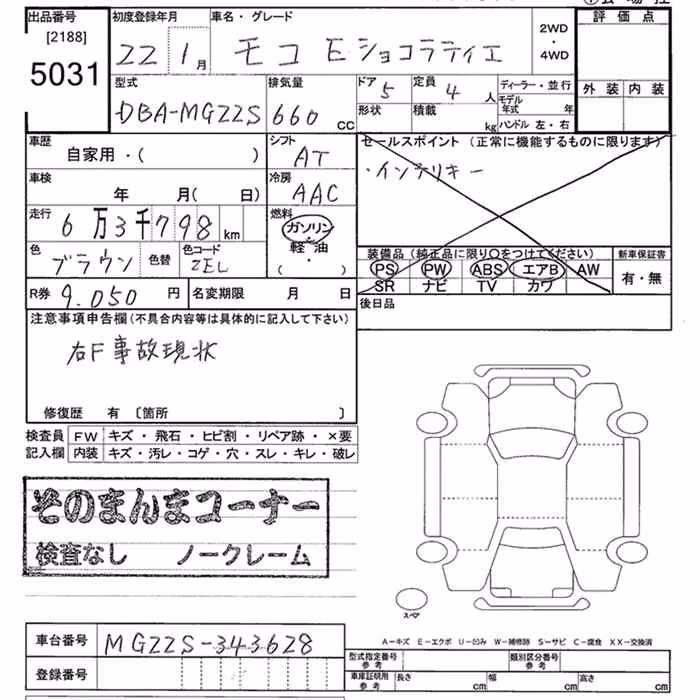 出品番号 初度登録年月 車名・グレード 評価点
[2188]
5031 22 1月 モコ Eショコラティエ 2WD・4WD
外装 内装
型式 排気量 ドア 定員 ディーラー・並行
DBA-MGZZS 660 CC 5 4人 モデル年式 年
形状 積載 kg ハンドル 左・右
車歴 シフト セールスポイント (正常に機能するものに限ります)
自家用・( ) AT ・インテリキー
車検 冷房
年 月(日) AAC
走行 燃料
6万3千798km ガソリン・軽油
( ・ )
色 色替 色コード 装備品(純正品に限り○をつけてください) 新車保証書
ブラウン ZEL PS PW ABS エアB AW 有・無
SR ナビ TV カワ
R券 9.050 円 名変期限 月 日 後日品
注意事項申告欄(不具合内容等は具体的に記入して下さい)
右F事故現状
修復歴 有 〔箇所 〕
検査員 FW キズ・飛石・ヒビ割・リペア跡・×要
記入欄 内装 キズ・汚レ・コゲ・穴・スレ・キレ・破レ
そのまんまコーナー
検査なし ノークレーム
スペア
車台番号 MGZZS-343628
A−キズ E−エクボ U−凹み W−補修跡 S−サビ C−腐食 XX−交換済
登録番号 型式指定番号 参考 類別区分番号 参考
車庫証明用 参考 長さ cm 幅 cm 高さ cm